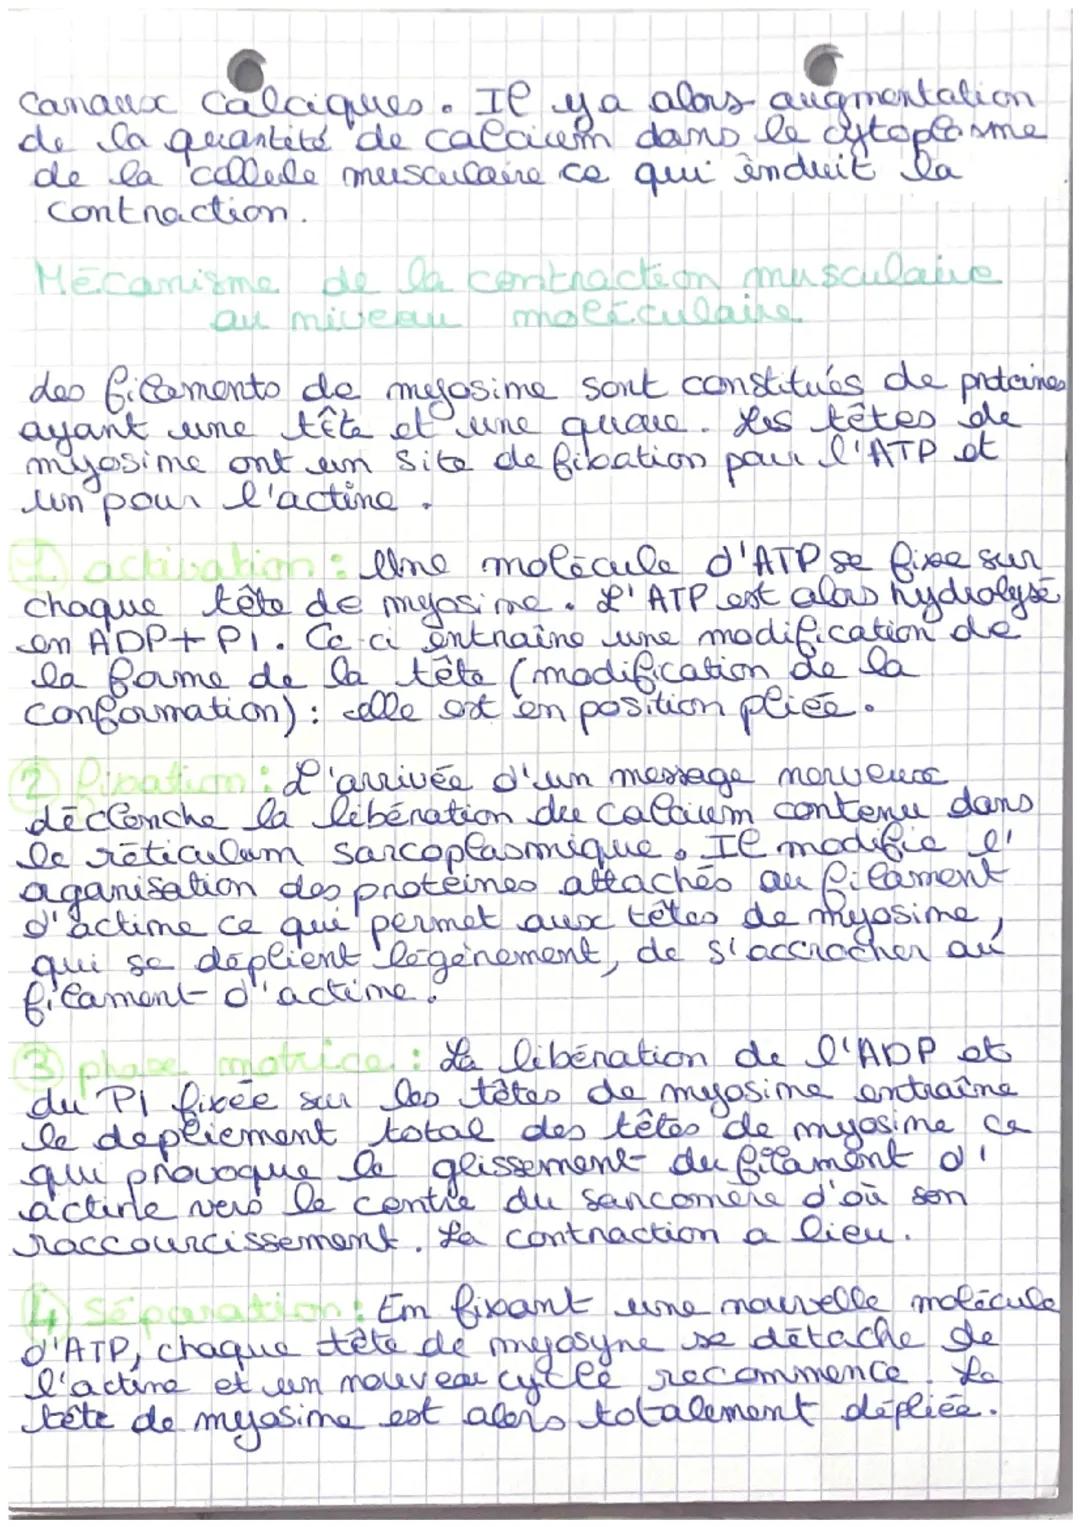 canaux calciques. Il y a alors augmentation
de la quantité de calcium dans le cytoplasme
de la cellule musculaire ce qui induit la
contraction.
Mécanisme de la contraction musculaire
au niveau moléculaire
des filaments de myosine sont constitués de protéines
ayant une tête et une queue. Les têtes de
myosine ont un site de fixation pour l'ATP et
un pour l'actine.
① activation : Une molécule d'ATP se fixe sur
chaque tête de myosine. L'ATP est alors hydrolysé
en ADP + PI. Ce ci entraîne une modification de
la forme de la tête (modification de la
conformation) : elle est en position pliée.
② fixation : L'arrivée d'un message nerveux
déclenche la libération du calcium contenu dans
le réticulum sarcoplasmique. Il modifie l'
organisation des protéines attachés au filament
d'actine ce qui permet aux têtes de myosine,
qui se déplient légèrement, de s'accrocher au
filament d'actine.
③ phase motrice : La libération de l'ADP et
du PI fixée sur les têtes de myosine entraîne
le dépliement total des têtes de myosine ce
qui provoque le glissement du filament d'
actine vers le centre du sarcomère d'où son
raccourcissement. La contraction a lieu.
④ Séparation : En fixant une nouvelle molécule
d'ATP, chaque tête de myosyne se détache de
l'actine et un nouveau cycle recommence. La
tête de myosine est alors totalement dépliée.